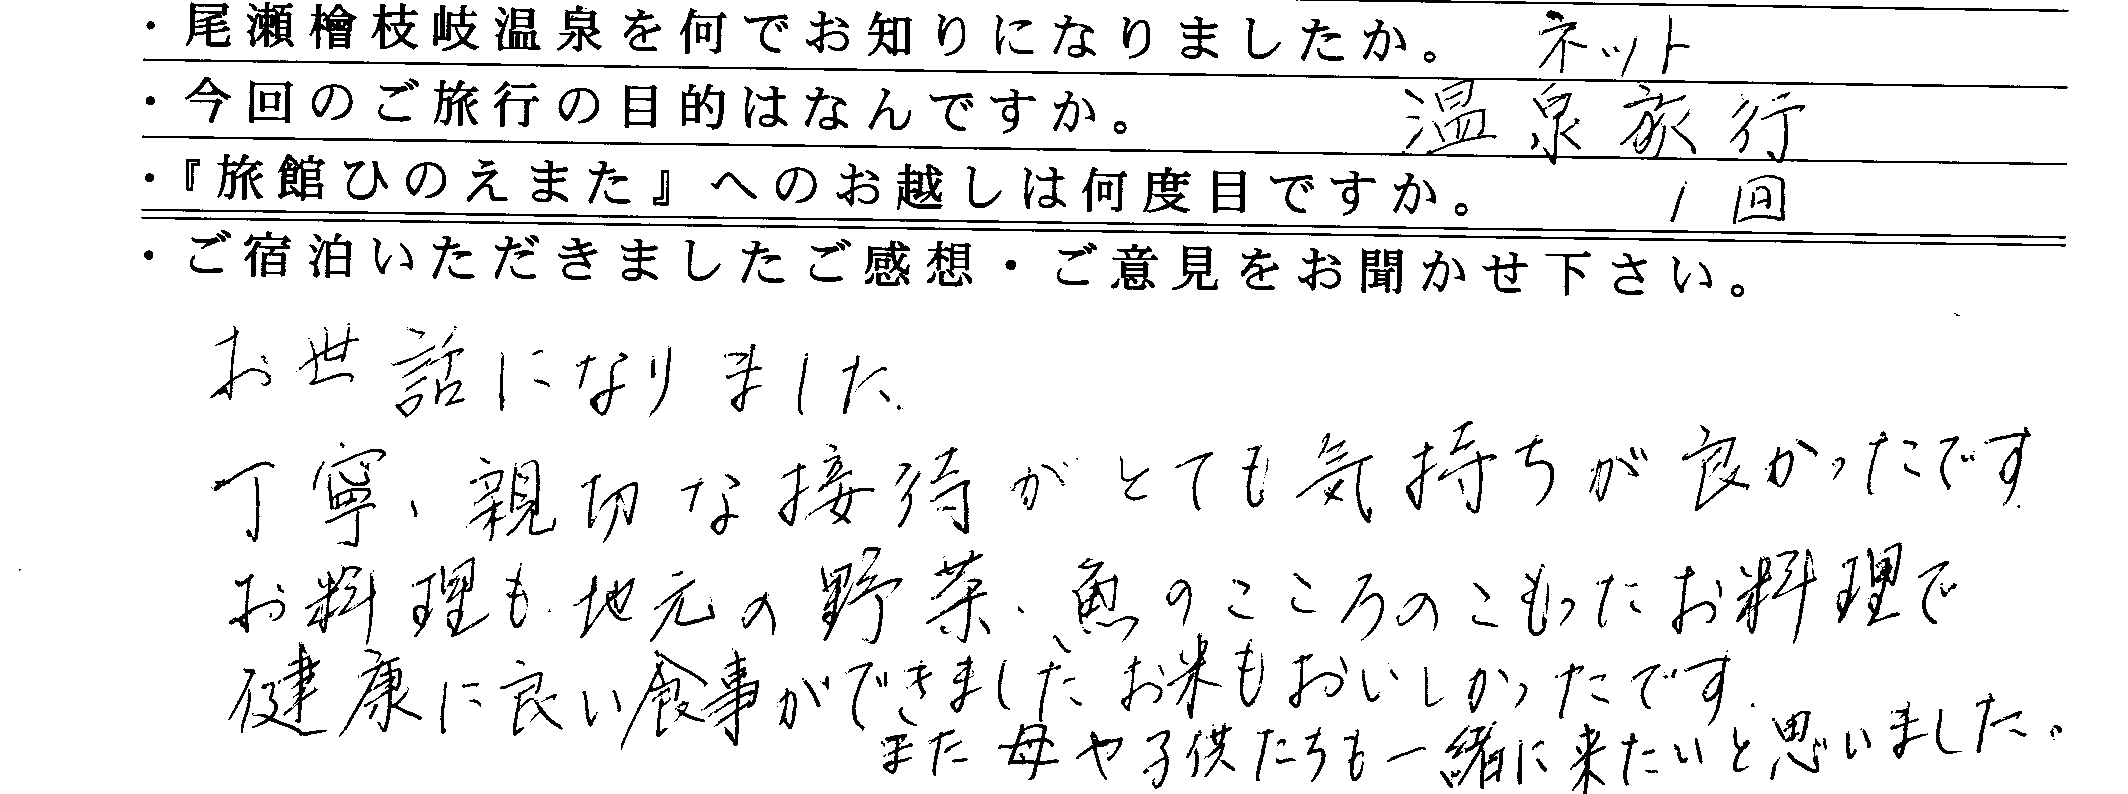 ・尾瀬檜枝岐温泉を何でお知りになりましたか。 ネット
・今回のご旅行の目的はなんですか。 温泉旅行
・『旅館ひのえまた』へのお越しは何度目ですか。 1回
・ご宿泊いただきましたご感想・ご意見をお聞かせ下さい。
お世話になりました.
丁寧、親切な接待がとても気持ちが良かったです.
お料理も地元の野菜、魚のこころのこもったお料理で
健康に良い食事ができました、お米もおいしかったです.
また母や子供たちも一緒に来たいと思いました。